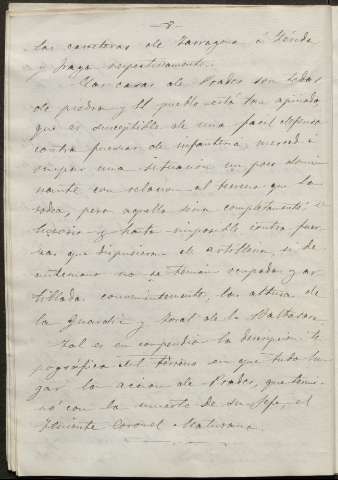 -8-
las carreteras de Tarragona á Lérida
y Fraga respectivamente.
Las casas de Prades son todas
de piedra y el pueblo está tan apiñado
que es susceptible de una facil defensa
contra fuerzas de infanteria, merced á
ocupar una situacion un poco domi-
nante con relacion al terreno que la
rodea, pero aquella seria completamente i-
lusoria y hasta imposible contra fuer-
zas que dispusieran de artilleria, si de
antemano no se tenian ocupadas y ar-
tilladas convenientemente, las alturas de
la Guardia y Tosal de la Baltasana.
Tal es en compendio la descripcion to-
pográfica del terreno en que tuvo lu-
gar la accion de Prades, que termi-
nó con la muerte de su Jefe, el
Teniente Coronel Maturana.